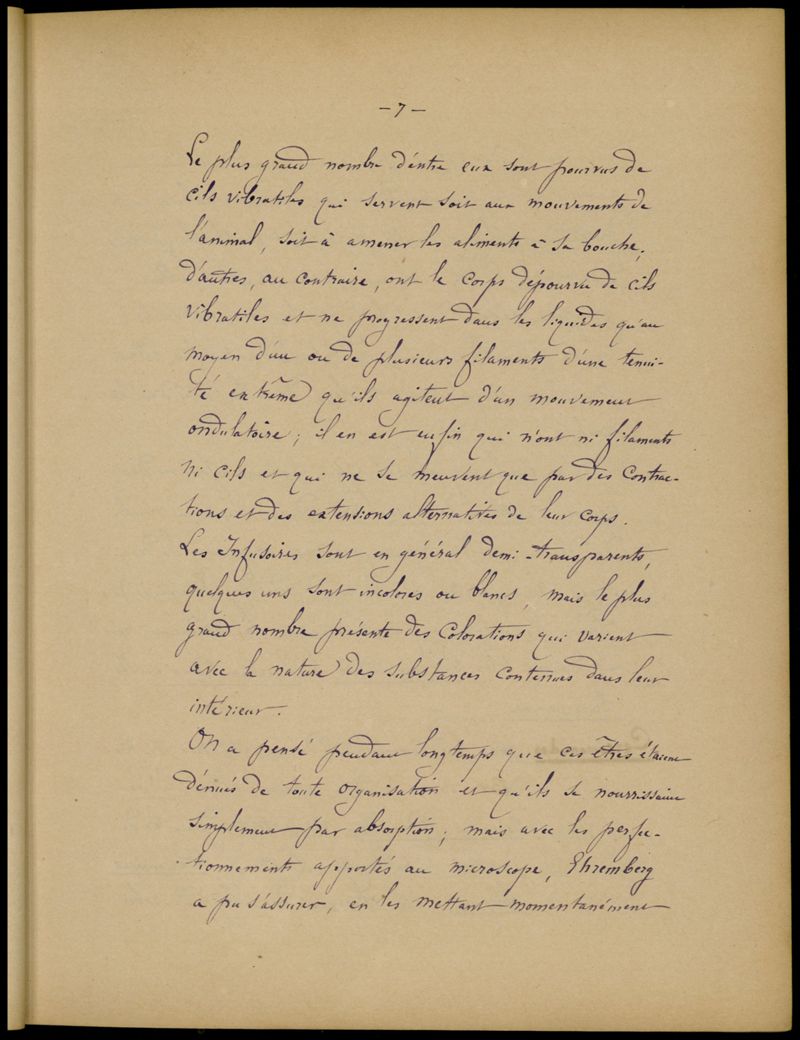 – 7 –
Le plus grand nombre d'entre eux sont pourvus de
cils vibratiles qui servent soit aux mouvements de
l'animal, soit à amener les aliments à sa bouche;
d'autres, au contraire, ont le corps dépourvu de cils
vibratiles et ne progressent dans les liquides qu'au
moyen d'un ou de plusieurs filaments d'une tenui-
té extrême qu'ils agitent d'un mouvement
ondulatoire; il en est enfin qui n'ont ni filaments
ni cils et qui ne se meuvent que par des contrac-
tions et des extensions alternatives de leur corps.
Les Infusoires sont en général demi-transparents,
quelques uns sont incolores ou blancs, mais le plus
grand nombre présente des colorations qui varient
avec la nature des substances contenues dans leur
intérieur.
On a pensé pendant longtemps que ces êtres étaient
dénués de toute organisation et qu'ils se nourrissaient
simplement par absorption; mais avec les perfec-
tionnements apportés au microscope, Ehremberg
a pu s'assurer, en les mettant momentanément